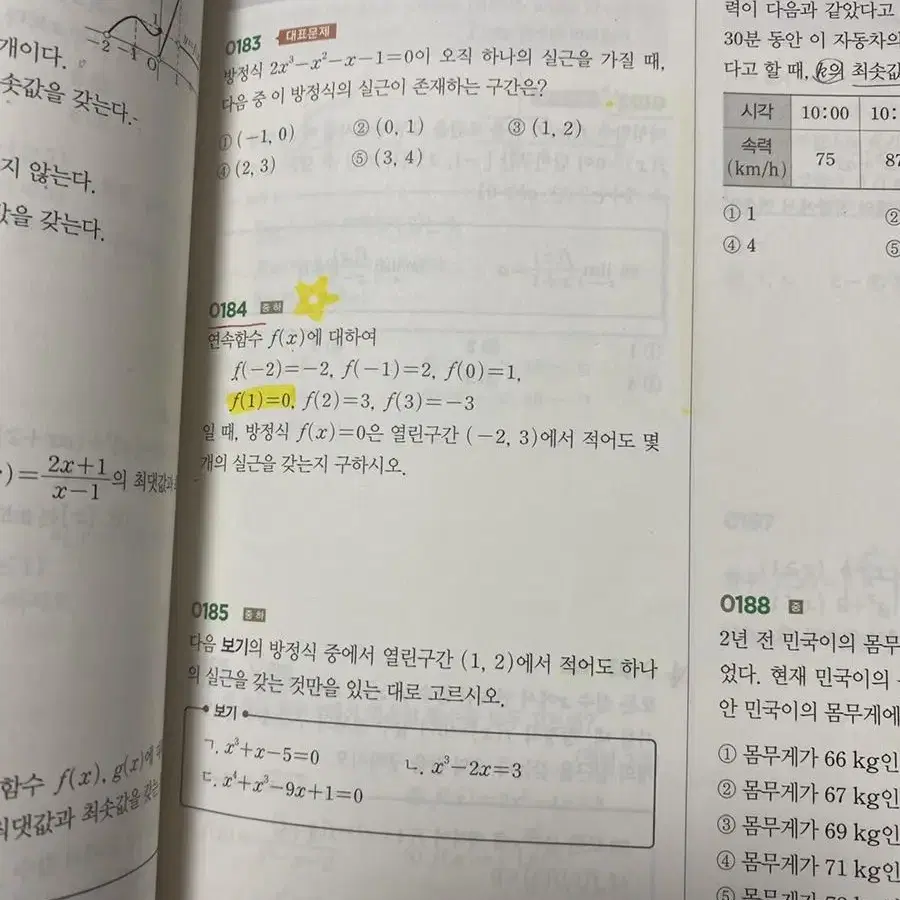 개이다.
솟값을 갖는다.
지 않는다.
값을 갖는다.
=\frac{2x+1}{x-1}의 최댓값과
함수 f(x), g(x)에
최댓값과 최솟값을 갖는
0183 대표문제
방정식 2x³-x²-x-1=0이 오직 하나의 실근을 가질 때,
다음 중 이 방정식의 실근이 존재하는 구간은?
① (-1, 0) ② (0, 1) ③ (1, 2)
④ (2, 3) ⑤ (3, 4)
0184 중하
연속함수 f(x)에 대하여
f(-2)=-2, f(-1)=2, f(0)=1,
f(1)=0, f(2)=3, f(3)=-3
일 때, 방정식 f(x)=0은 열린구간 (-2, 3)에서 적어도 몇
개의 실근을 갖는지 구하시오.
0185 중하
다음 보기의 방정식 중에서 열린구간 (1, 2)에서 적어도 하나
의 실근을 갖는 것만을 있는 대로 고르시오.
보기
ㄱ. x³+x-5=0 ㄴ. x³-2x=3
ㄷ. x⁴+x³-9x+1=0
력이 다음과 같았다고
30분 동안 이 자동차의
다고 할 때, k의 최솟값
시각 10:00 10:
속력 (km/h) 75 87
① 1 ②
④ 4 ⑤
0188 중
2년 전 민국이의 몸무
었다. 현재 민국이의
안 민국이의 몸무게에
① 몸무게가 66 kg인
② 몸무게가 67 kg인
③ 몸무게가 69 kg인
④ 몸무게가 71 kg인
⑤ 몸무게가